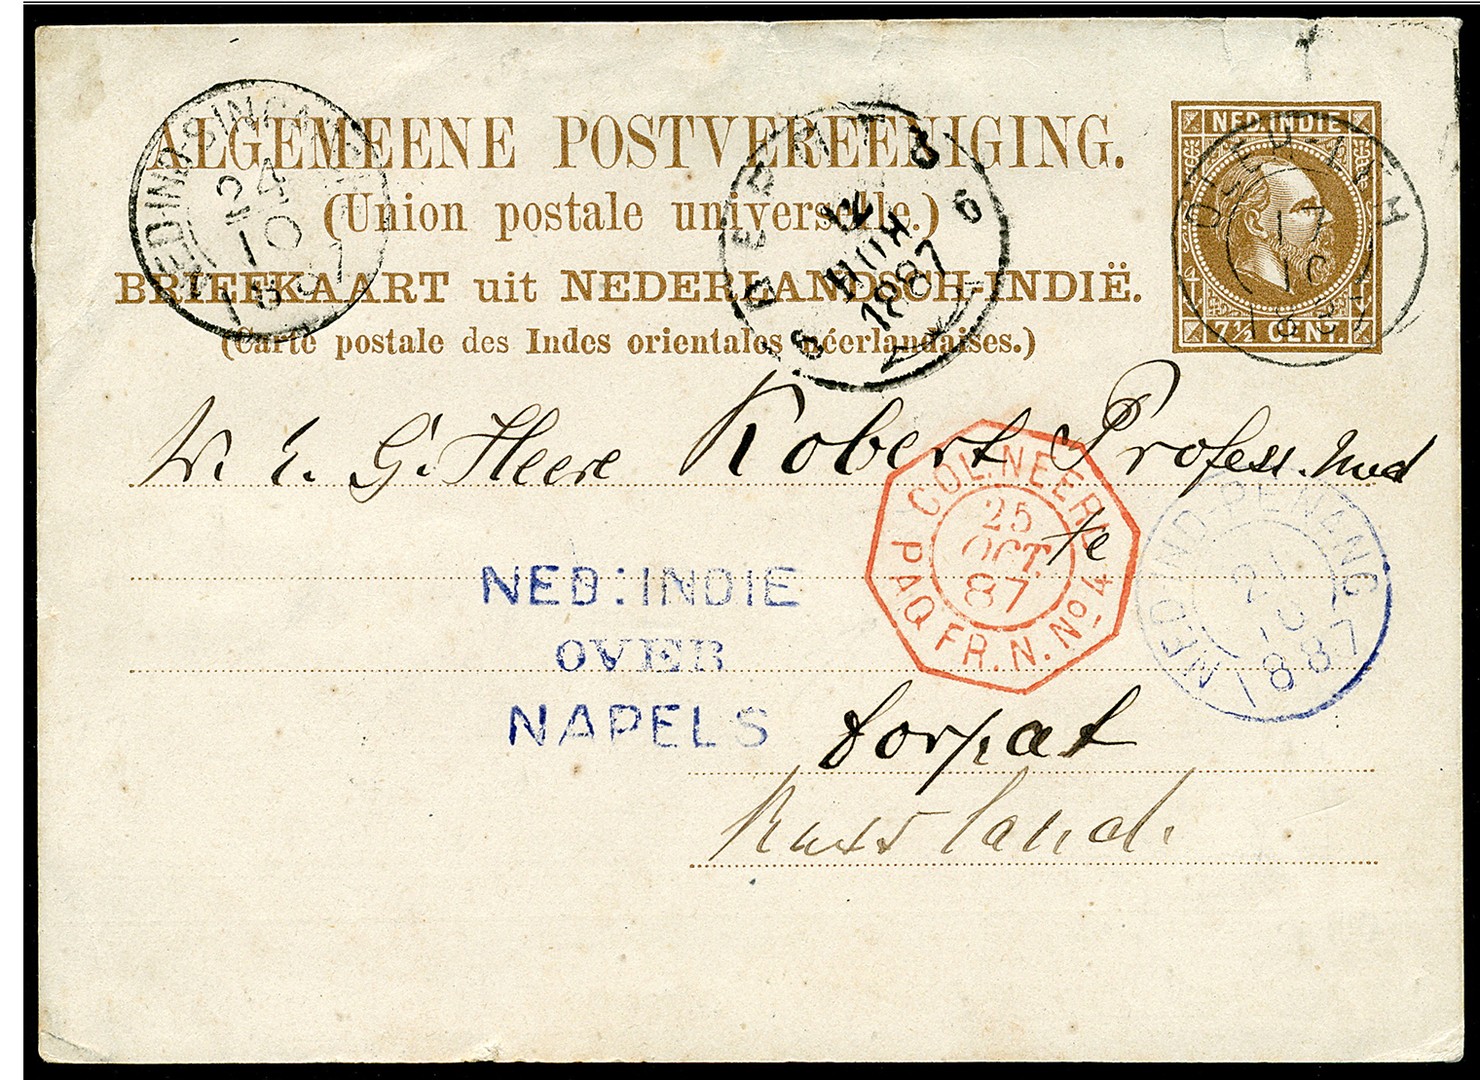 ALGEMEENE POSTVEREENIGING.
(Union postale universelle.)
BRIEFKAART uit NEDERLANDSCH-INDIË.
(Carte postale des Indes orientales néerlandaises.)
NED. INDIE
7½ CENT.
NED:IND:SINGA
24
10
1887
1887
17
10
188
W. E. G. Heere Robert Profess. Med
te
COL. NEERL
25
OCT.
87
PAQ FR. N. No 4
NED:IND:PENANG
21
10
1887
NED: INDIE
OVER
NAPELS
Dorpat
Russland.